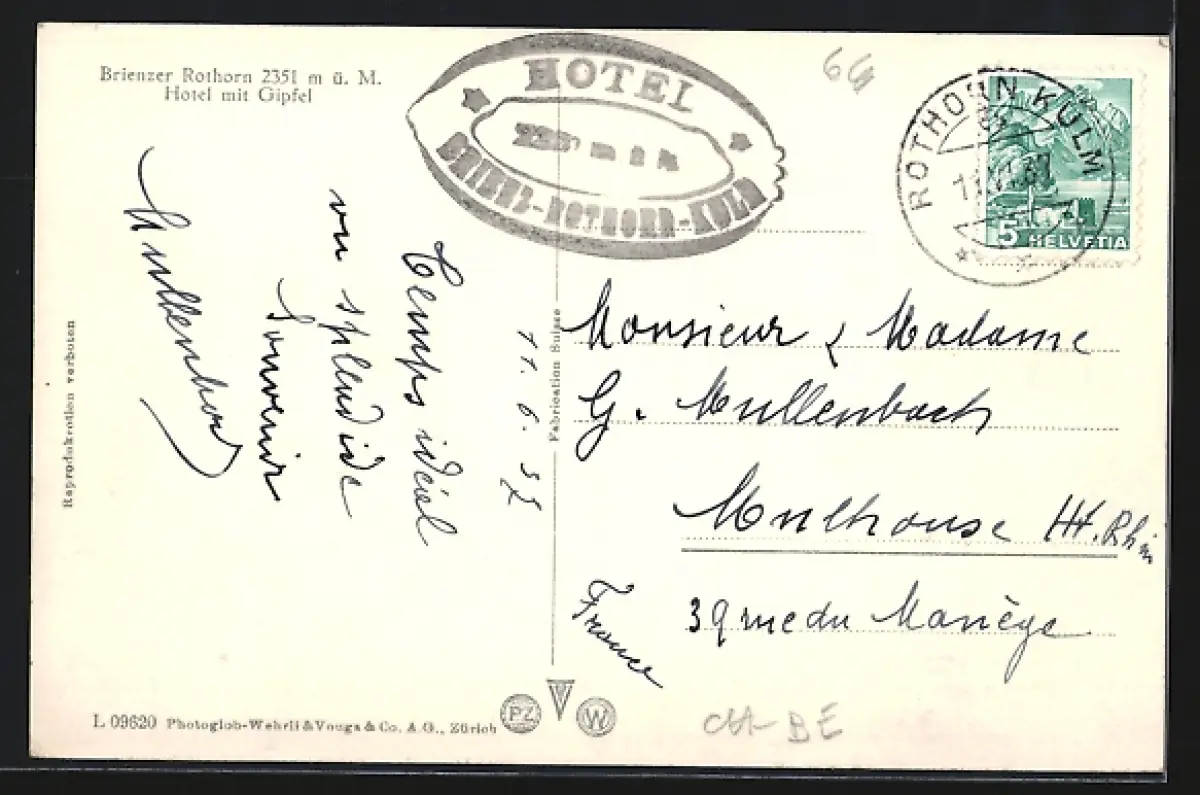 Brienzer Rothorn 2351 m ü. M.
Hotel mit Gipfel
HOTEL
BRIENZ-ROTHORN-KULM
ROTHORN KULM
11.VI.37
5 HELVETIA
66
11. 6. 37
Temps idéal
vu splendide
Souvenir
Reproduktion verboten
Fabrication Suisse
Monsieur & Madame
G. Mullenbach
Mulhouse Ht. Rhin
39 rue du Manège
France
L 09620 Photoglob-Wehrli & Vouga & Co. A.G., Zürich
PZ
W
CH-BE